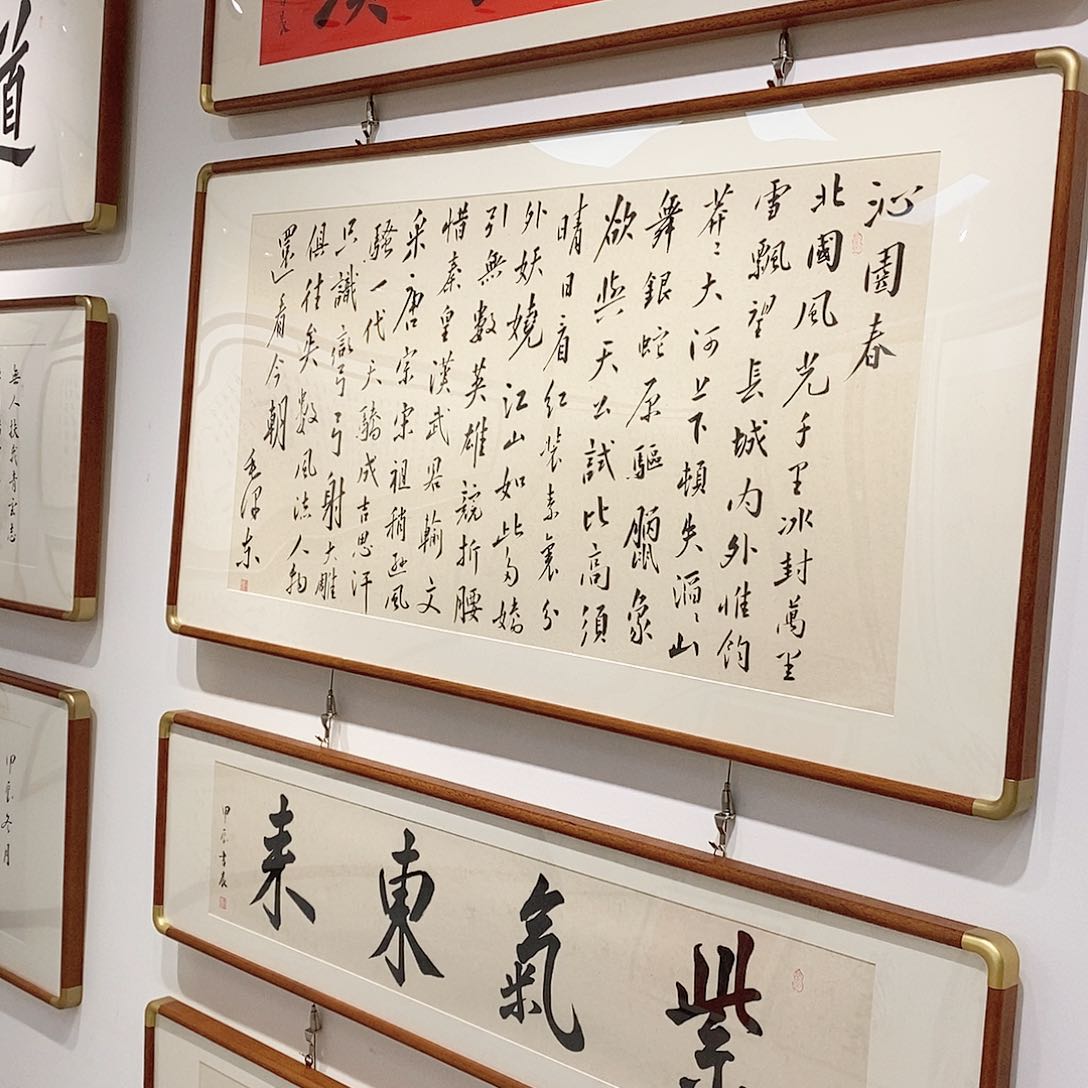 道
沁園春
北國風光千里冰封萬里
雪飄望長城内外惟餘
莽〻大河上下頓失滔〻山
舞銀蛇原驅臘象
欲與天公試比高須
晴日看紅裝素裹分
外妖嬈江山如此多嬌
引無數英雄競折腰
惜秦皇漢武畧輸文
采唐宗宋祖稍遜風
騷一代天驕成吉思汗
只識彎弓射大雕
俱往矣數風流人物
還看今朝
毛澤东
無人扶我青雲志
甲辰冬月
紫氣東来
甲辰